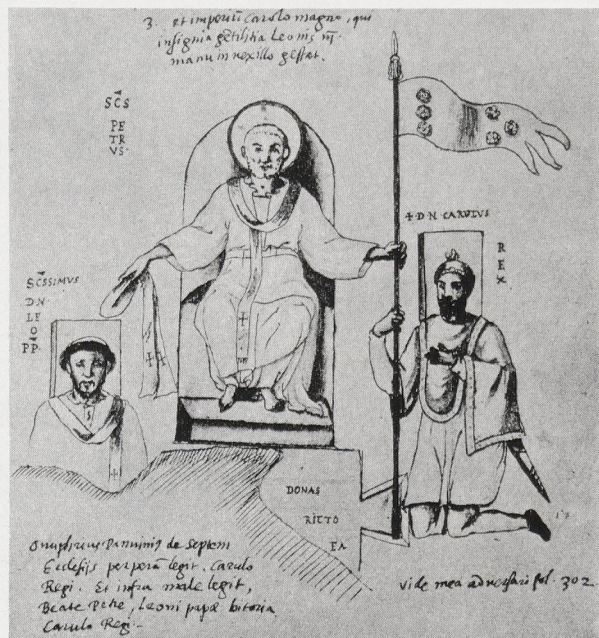 3. et imperiū Carolo magno, qui
insignia gētilitia Leonis III.
manu in vexillo gestat.
SC̄S
PE
TR
VS
+ D N CARVLVS
R
E
X
SC̄SSIMVS
D.N
LE
O
PP̄
DONAS
RICTO
EA
Onuphrius Panvinius de septem
Ecclesijs perperā legit. Carulo
Regi. Et infra male legit,
Beate Petre, Leoni papæ bitoria
Carulo Regi.
vide mea adversaria fol. 302